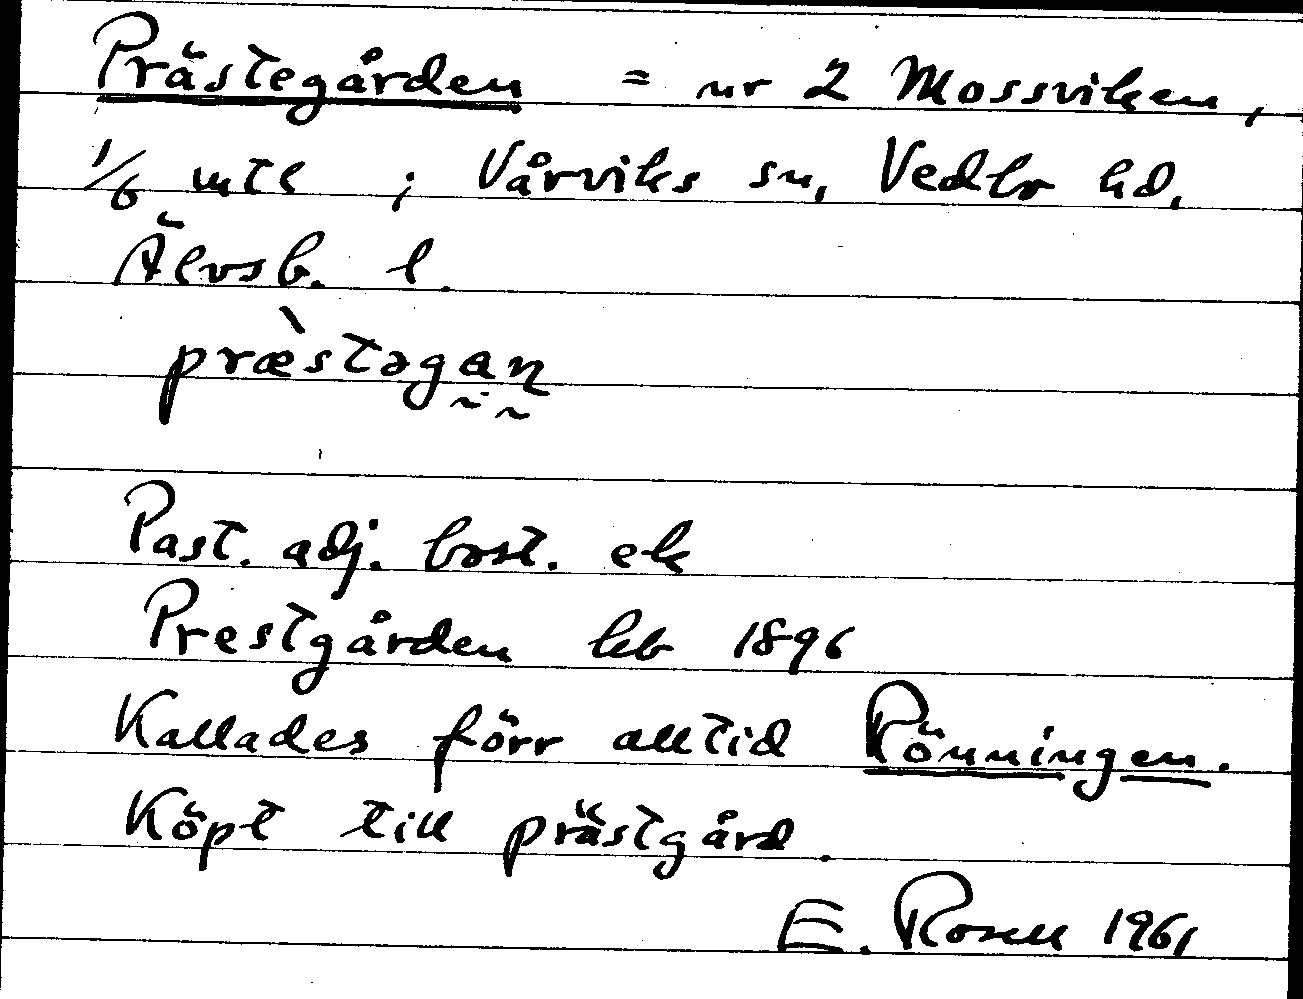 Prästegården = nr 2 Mossviken,
1/6 mtl ; Vårviks sn, Vedbo hd,
Älvsb. l.
præ̀stəgan
Past. adj. bost. ek
Prestgården kb 1896
Kallades förr alltid Rönningen.
Köpt till prästgård.
E. Rosell 1961